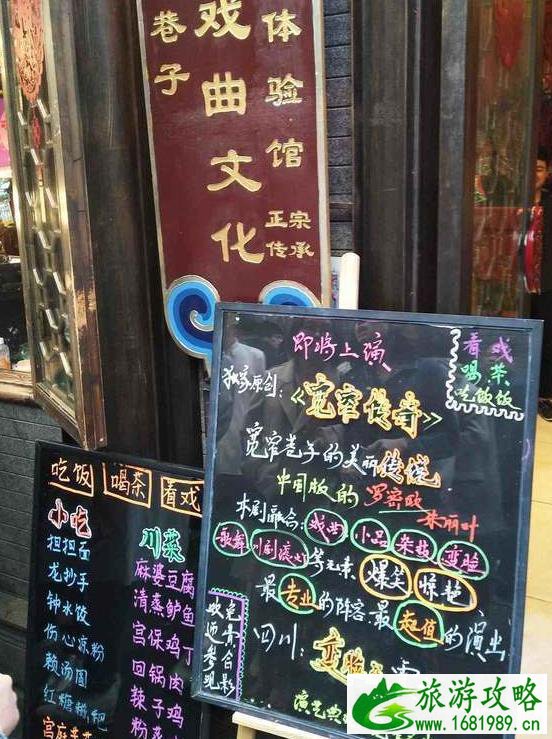 巷子
戏曲文化
体验馆
正宗
传承
即将上演
看戏
喝茶
吃饭饭
独家原创：
《宽窄传奇》
宽窄巷子的美丽传说
中国版的罗密欧
朱丽叶
本剧融合：戏曲 小品 杂技 变脸
歌舞 川剧滚灯 等元素 爆笑 惊艳
最专业的阵容 最超值的演出
四川：变脸
欢迎参观
免费合影
吃饭 喝茶 看戏
小吃
担担面
龙抄手
钟水饺
伤心凉粉
赖汤圆
红糖糍粑
川菜
麻婆豆腐
清蒸鲈鱼
宫保鸡丁
回锅肉
辣子鸡
旅游攻略
www.1681989.cn